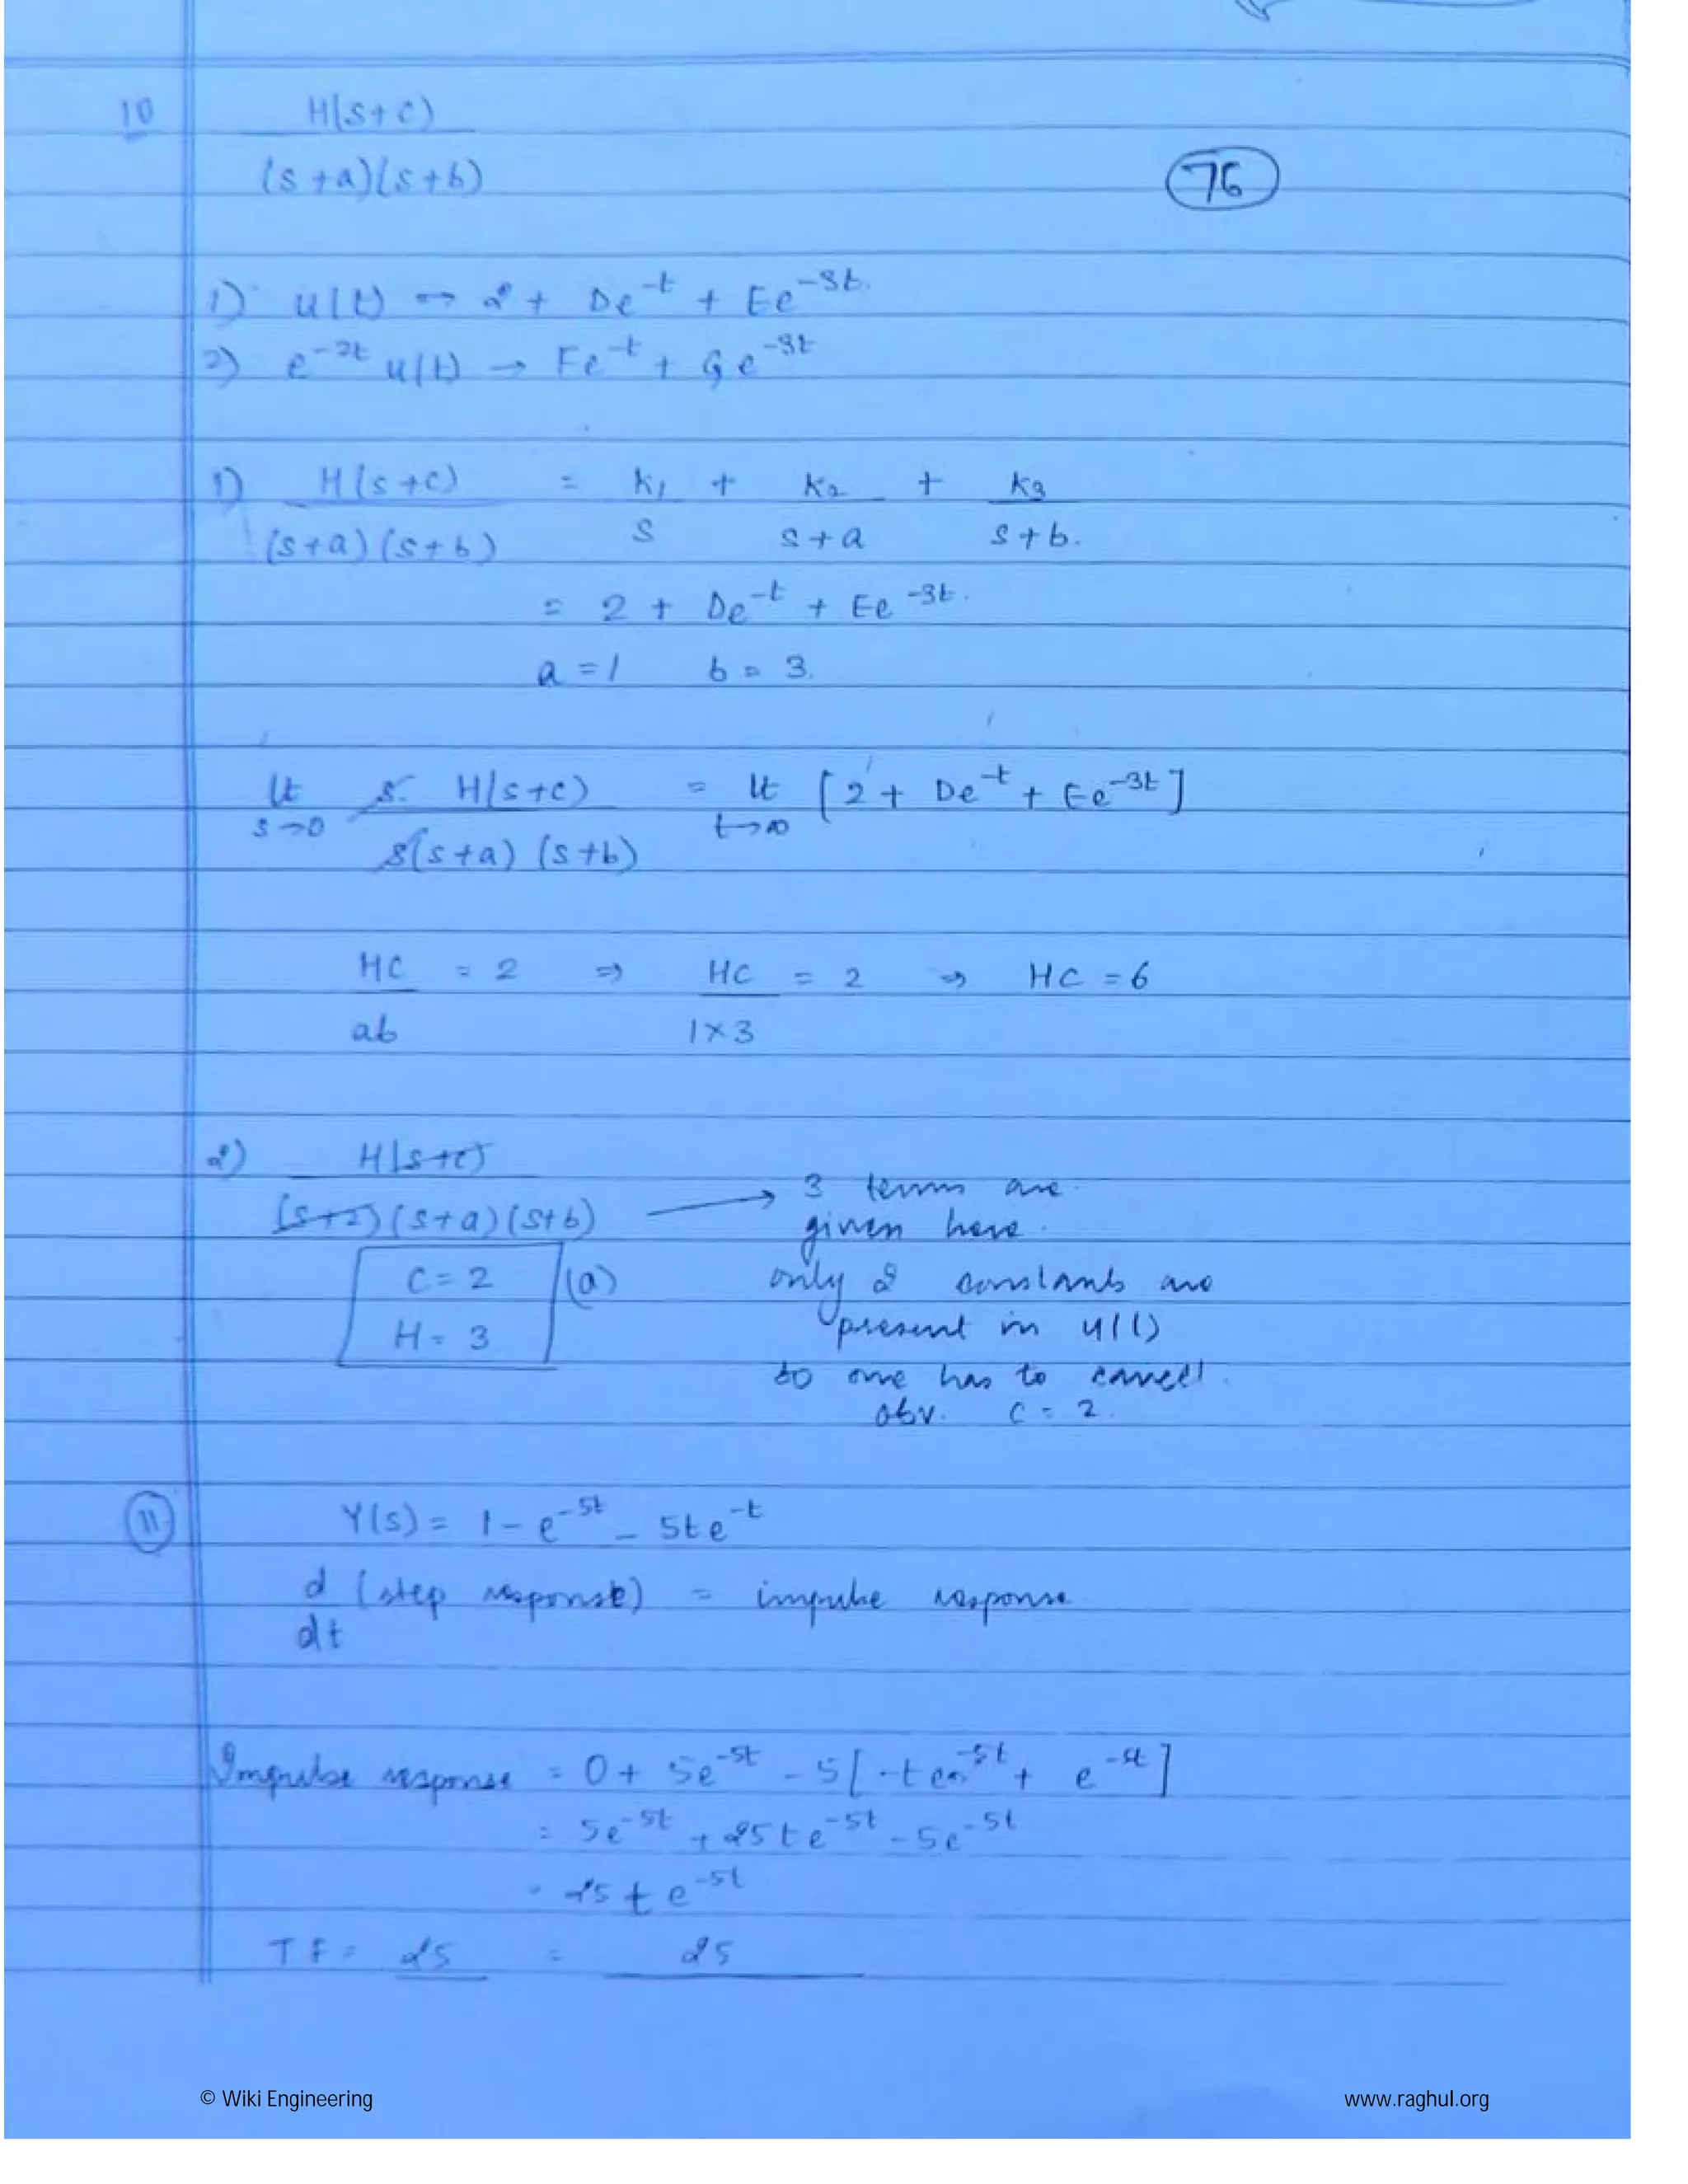 10 H(s+c)
(s+a)(s+b)
76
1) u(t) → 2 + De^-t + Ee^-3t.
2) e^-2t u(t) → Fe^-t + Ge^-3t
1) H(s+c) = k1 + k2 + k3
(s+a)(s+b) s s+a s+b.
= 2 + De^-t + Ee^-3t.
a=1 b=3.
lt s. H(s+c) = lt [2 + De^-t + Ee^-3t]
s→0 s(s+a)(s+b) t→∞
HC = 2 ⇒ HC = 2 ⇒ HC = 6
ab 1×3
2) H(s+c)
(s+2)(s+a)(s+b) → 3 terms are
given here.
C=2 (a) only 2 constants are
H=3 present in u(t)
so one has to cancel.
obv. C=2.
11 Y(s) = 1 - e^-5t - 5te^-t
d (step response) = impulse response
dt
Impulse response = 0 + 5e^-5t - 5[-te^-5t + e^-5t]
= 5e^-5t + 25te^-5t - 5e^-5t
= 25te^-5t
TF = 25 = 25
© Wiki Engineering www.raghul.org